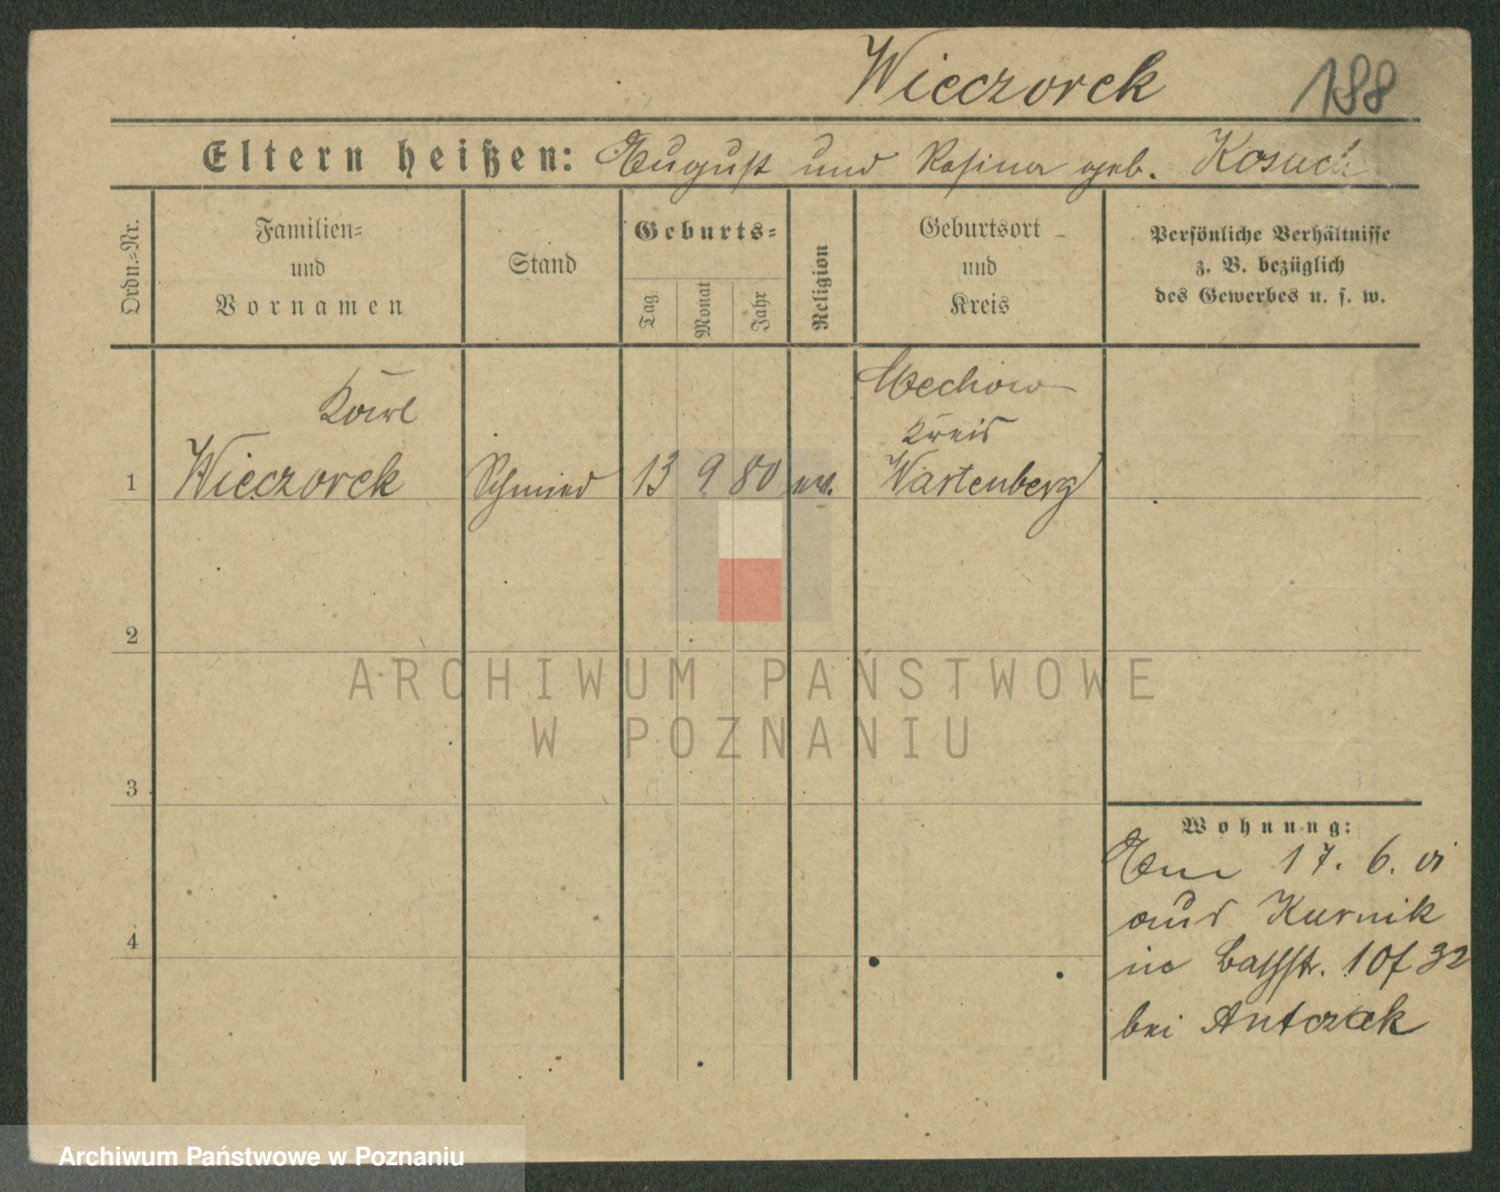 Wieczorek 188
Eltern heißen: August und Rosina geb. Kosuch
Ordn.-Nr.
Familien-
und
Vornamen
Stand
Geburts-
Tag
Monat
Jahr
Religion
Geburtsort
und
Kreis
Persönliche Verhältnisse
z. B. bezüglich
des Gewerbes u. s. w.
Karl
1 Wieczorek Schmied 13 9 80 ev.
Mechow
Kreis
Wartenberg
2
3
4
Wohnung:
17. 6. 01
aus Kurnik
in 32
bei Antczak
ARCHIWUM PAŃSTWOWE
W POZNANIU
Archiwum Państwowe w Poznaniu